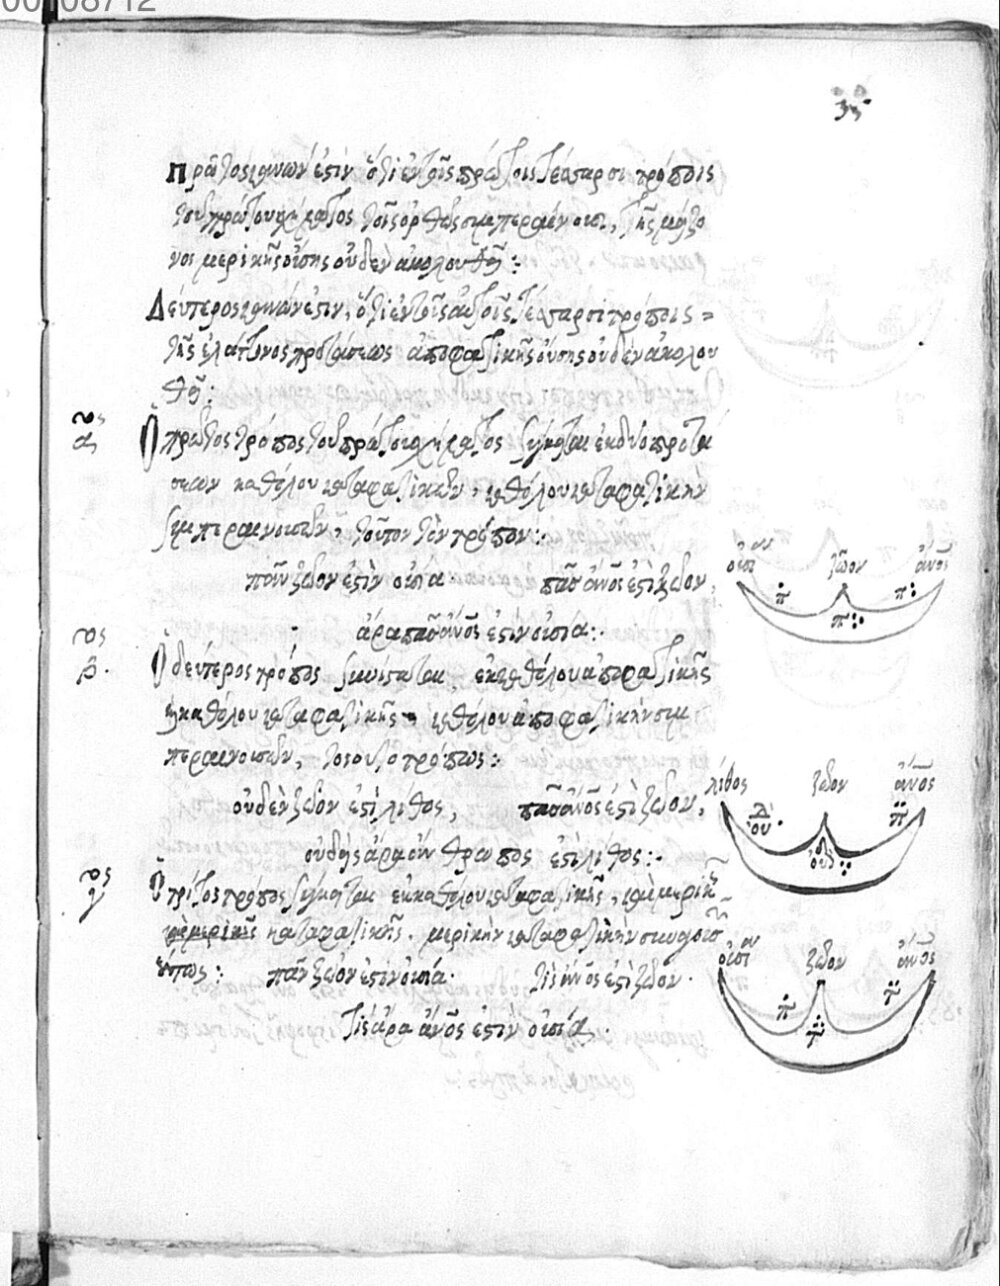 35
πρῶτος κανών ἐστιν ὅτι ἐν τοῖς πρώτοις τέσσαρσι τρόποις
τοῦ πρώτου σχήματος τοῖς ὀρθῶς συμπεραίνουσι, τῆς μείζο
νος μερικῆς οὔσης οὐδὲν ἀκολουθεῖ :
Δεύτερος κανών ἐστιν, ὅτι ἐν τοῖς αὐτοῖς τέσσαρσι τρόποις =
τῆς ἐλάττονος προτάσεως ἀποφατικῆς οὔσης οὐδὲν ἀκολου
θεῖ :
α ος
Ὁ πρῶτος τρόπος τοῦ πρώτου σχήματος σύγκειται ἐκ δύο προτά
σεων καθόλου καταφατικῶν, καθόλου καταφατικὴν
συμπεραινουσῶν, τοῦτον τὸν τρόπον :
πᾶν ζῶον ἐστὶν οὐσία πᾶς ἄνος ἐστὶ ζῶον,
ἄρα πᾶς ἄνος ἐστὶν οὐσία :
οὐσι ζῶον ἄνος
π π π
β ος
Ὁ δεύτερος τρόπος συνίσταται ἐκ καθόλου ἀποφατικῆς
καὶ καθόλου καταφατικῆς καθόλου ἀποφατικὴν συμ
περαινουσῶν, τρόπως :
οὐδὲν ζῶον ἐστὶ λίθος, πᾶς ἄνος ἐστὶ ζῶον,
οὐδεὶς ἄρα ἄνθρωπος ἐστὶ λίθος :
λίθος ζῶον ἄνος
οὐδ π οὐδ
γ ος
Ὁ τρίτος τρόπος σύγκειται ἐκ καθόλου καταφατικῆς, καὶ μερικῆς
καταφατικῆς. μερικὴν καταφατικὴν συναγουσῶν
οὕτως : πᾶν ζῶον ἐστὶν οὐσία. τὶς ἄνος ἐστὶ ζῶον.
τὶς ἄρα ἄνος ἐστὶν οὐσία.
οὐσι ζῶον ἄνος
π τ τ